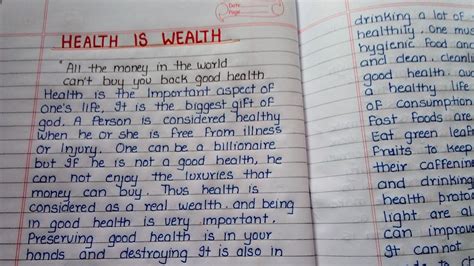 Date
Page
HEALTH IS WEALTH
"All the money in the world
can't buy you back good health
Health is the Important aspect of
one's life, It is the biggest gift of
god. A Person is considered healthy
when he or she is free from illness
or Injury. One can be a billionaire
but If he is not a good health, he
can not enjoy the luxuries that
money can buy. Thus health is
considered as a real wealth. and being
in good health is very important.
Preserving good health is in your
hands and destroying It is also in
drinking a lot of
healthity. One mus
hygienic Food and
and clean. cleanli
good health au
a healthy life
of consumption
Fast foods are
Eat green leaf
Fruits to keep
their caffenin
and drinking
health protoc
light are a
can improve
It cannot
is to c